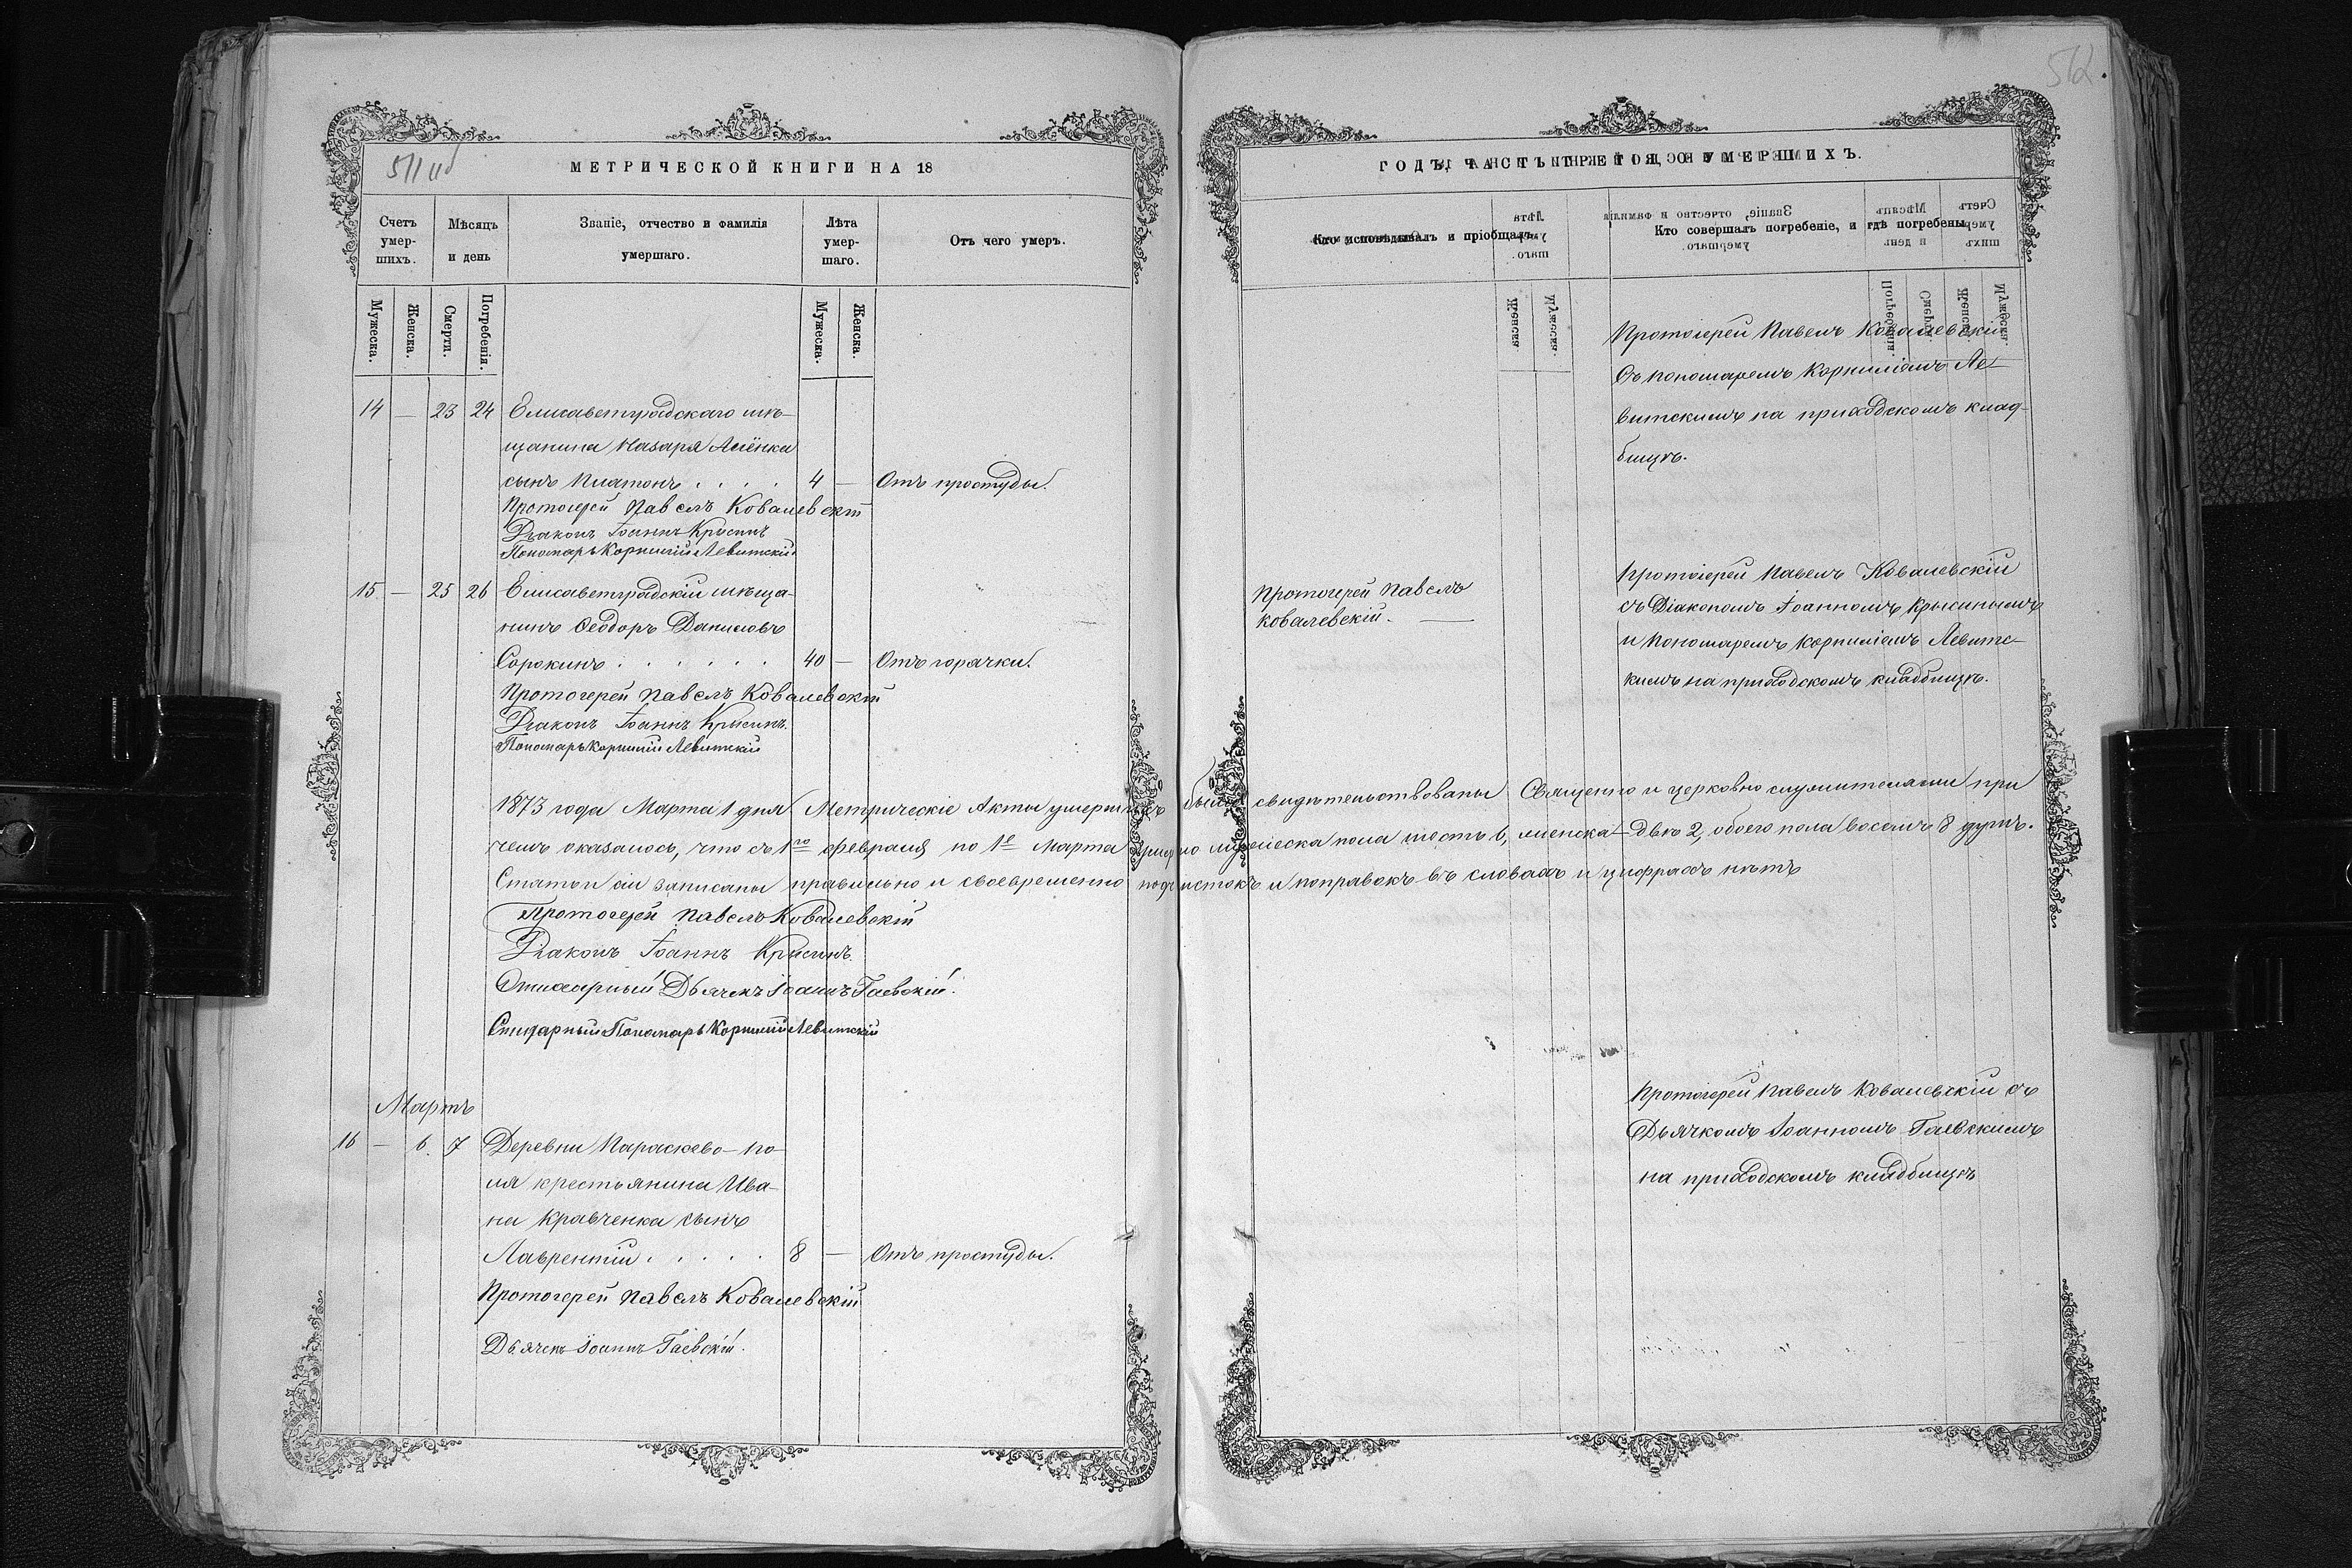 511 об
МЕТРИЧЕСКОЙ КНИГИ НА 18
Счетъ умер-шихъ.
Мѣсяцъ и день
Званіе, отчество и фамилія умершаго.
Лѣта умер-шаго.
Отъ чего умеръ.
Мужеска.
Женска.
Смерти.
Погребенія.
Мужеска.
Женска.
14 — 23 24 Елисаветградскаго мѣ-
щанина Назаря
сынъ Платонъ . . . . 4 — Отъ простуды.
Протоіерей Павелъ Ковалевскій
Діаконъ Іоаннъ Крысинъ
Пономарь Корнилій Левитскій.
15 — 25 26 Елисаветградскій мѣща-
нинъ Ѳеодоръ Даниловъ
Сорокинъ . . . . . . 40 — Отъ горячки.
Протоіерей Павелъ Ковалевскій
Діаконъ Іоаннъ Крысинъ.
Пономарь Корнилій Левитскій
1873 года Марта 1 дня. Метрическіе Акты умершихъ были свидѣтельствованы Священно и церковно служителями при
чемъ оказалось, что съ 1го февраля по 1е Марта умерло мужеска пола шесть 6, женска — двѣ 2, обоего пола восемь 8 душъ.
Статьи сіи записаны правильно и своевременно подчистокъ и поправокъ въ словахъ и цифрахъ нѣтъ
Протоіерей Павелъ Ковалевскій
Діаконъ Іоаннъ Крысинъ.
Дьячекъ Іоаннъ Гаевскій.
Пономарь Корнилій Левитскій
Мартъ
16 — 6. 7 Деревни Параскево-по-
ля крестьянина Ива-
на Кравченка сынъ
Лаврентій . . . . . 8 — Отъ простуды.
Протоіерей Павелъ Ковалевскій
Дьячекъ Іоаннъ Гаевскій.
512.
ГОДЪ, ЧАСТЬ ТРЕТІЯ, О УМЕРШИХЪ.
Кто исповѣдывалъ и пріобщалъ.
Кто совершалъ погребеніе, и гдѣ погребены.
Протоіерей Павелъ Ковалевскій
Съ пономаремъ Корниліемъ Ле-
витскимъ на приходскомъ клад-
бищѣ.
Протоіерей Павелъ
Ковалевскій. —
Протоіерей Павелъ Ковалевскій
съ Діакономъ Іоанномъ Крысинымъ
и пономаремъ Корниліемъ Левитс-
кимъ на приходскомъ кладбищѣ.
Протоіерей Павелъ Ковалевскій съ
Дьячкомъ Іоанномъ Гаевскимъ
на приходскомъ кладбищѣ